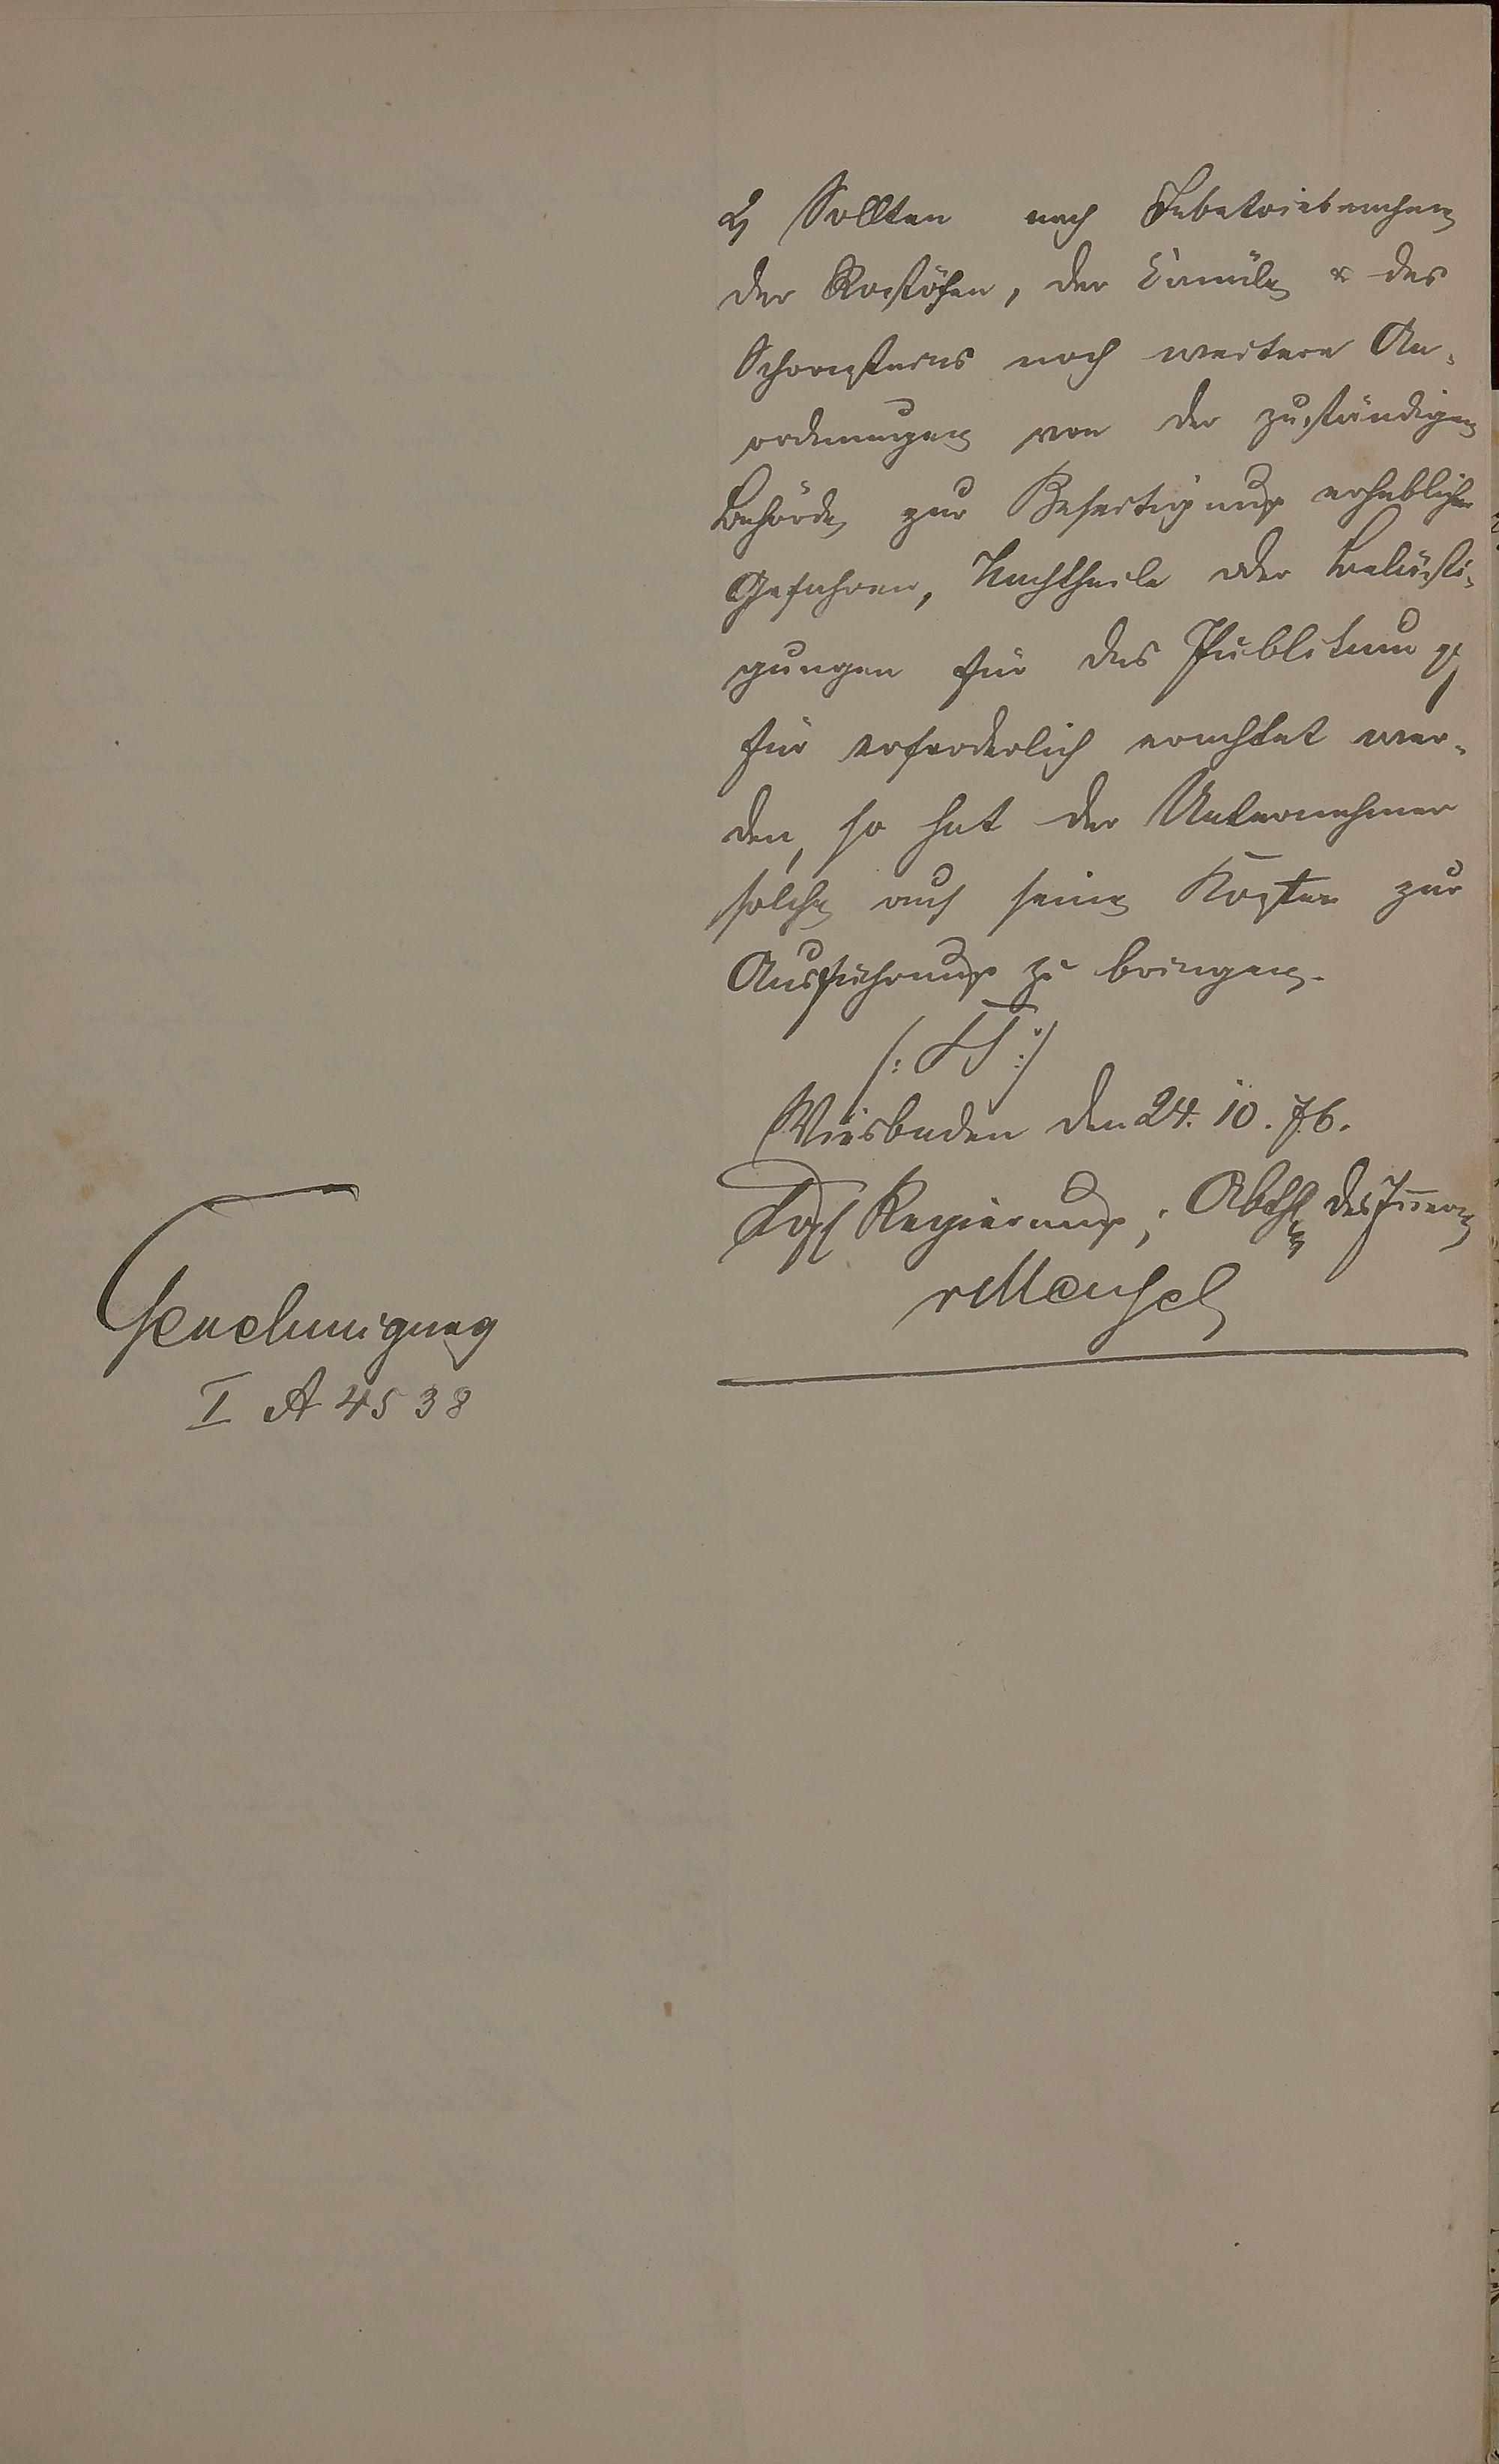 2, Sollten nach Inbetriebnahme
der Rostöfen, der Canäle & des
Schornsteins noch weitere An-
ordnungen von der zuständigen
Behörde zur Beseitigung erheblicher
Gefahren, Nachtheile oder Belästi-
gungen für das Publikum pp
für erforderlich erachtet wer-
den, so hat der Unternehmer
solche auf seine Kosten zur
Ausführung zu bringen.
(: LS :)
Wiesbaden den 24. 10. 76.
Kgl Regierung, Abthl des Innern
Genehmigung
I A 4538